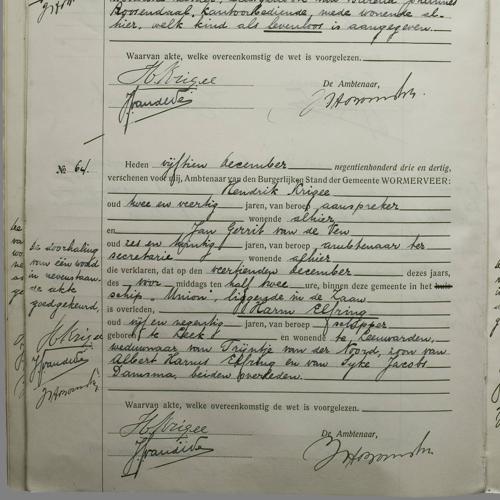 Roosendaal, kantoorbediende, mede wonende al-
hier, welk kind als levenloos is aangegeven.
Waarvan akte, welke overeenkomstig de wet is voorgelezen.
De Ambtenaar,
H Krigee
J vandeVen
No 64.
Heden vijftien december negentienhonderd drie en dertig,
verschenen voor mij, Ambtenaar van den Burgerlijken Stand der Gemeente WORMERVEER:
Hendrik Krigee
oud twee en veertig jaren, van beroep aanspreker
wonende alhier
en Jan Gerrit van de Ven
oud zes en jaren, van beroep ambtenaar ter
secretarie wonende alhier
die verklaren, dat op den veertienden december dezes jaars,
des voor middags ten half twee ure, binnen deze gemeente in het huis
schip "Union", liggende in de Zaan
is overleden, Harm Elfring
oud vijf en negentig jaren, van beroep schipper
geboren te Leek en wonende te Leeuwarden,
weduwnaar van Trijntje van der Noord, zoon van
Albert Harms Elfring en van Tyke Jacobs
Dansma, beiden overleden.
De doorhaling
van één woord
in nevenstaan-
de akte
goedgekeurd,
H Krigee
J vandeVen
Waarvan akte, welke overeenkomstig de wet is voorgelezen.
De Ambtenaar,
H Krigee
J vandeVen